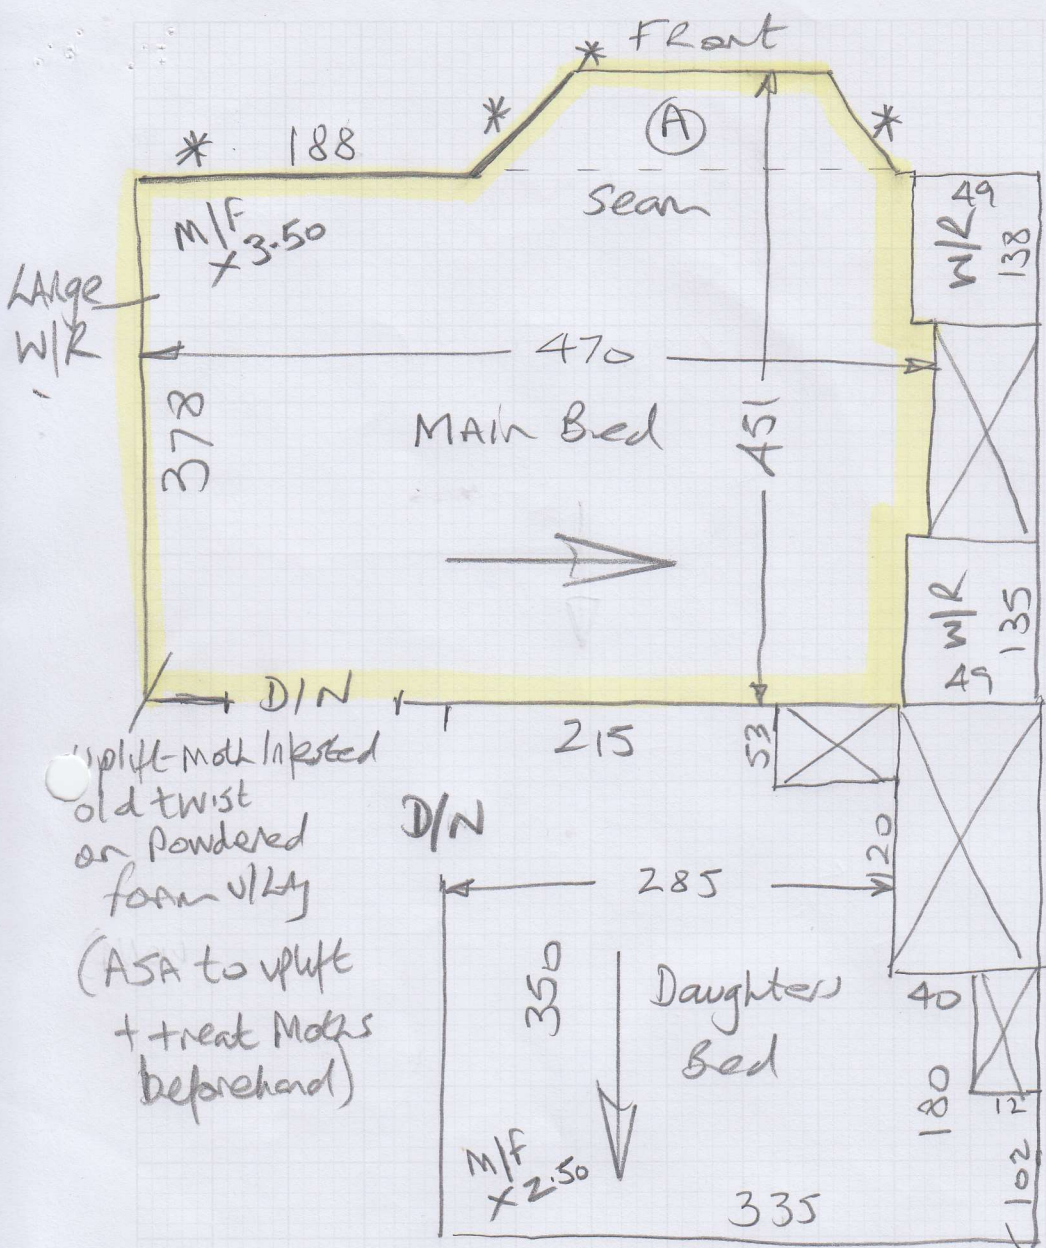 FRont
* * * *
188
A
Seam
M/F
x 3.50
49
W/R
138
LARge
W/R
470
378
MAin Bed
451
W/R
135
49
D/N
215
53
uplift-Moth Infested
old twist
on Powdered
foam u/Lay
(ASA to uplift
+ treat Moths
beforehand)
D/N
120
285
350
Daughters
Bed
40
180
12
102
M/F
x 2.50
335